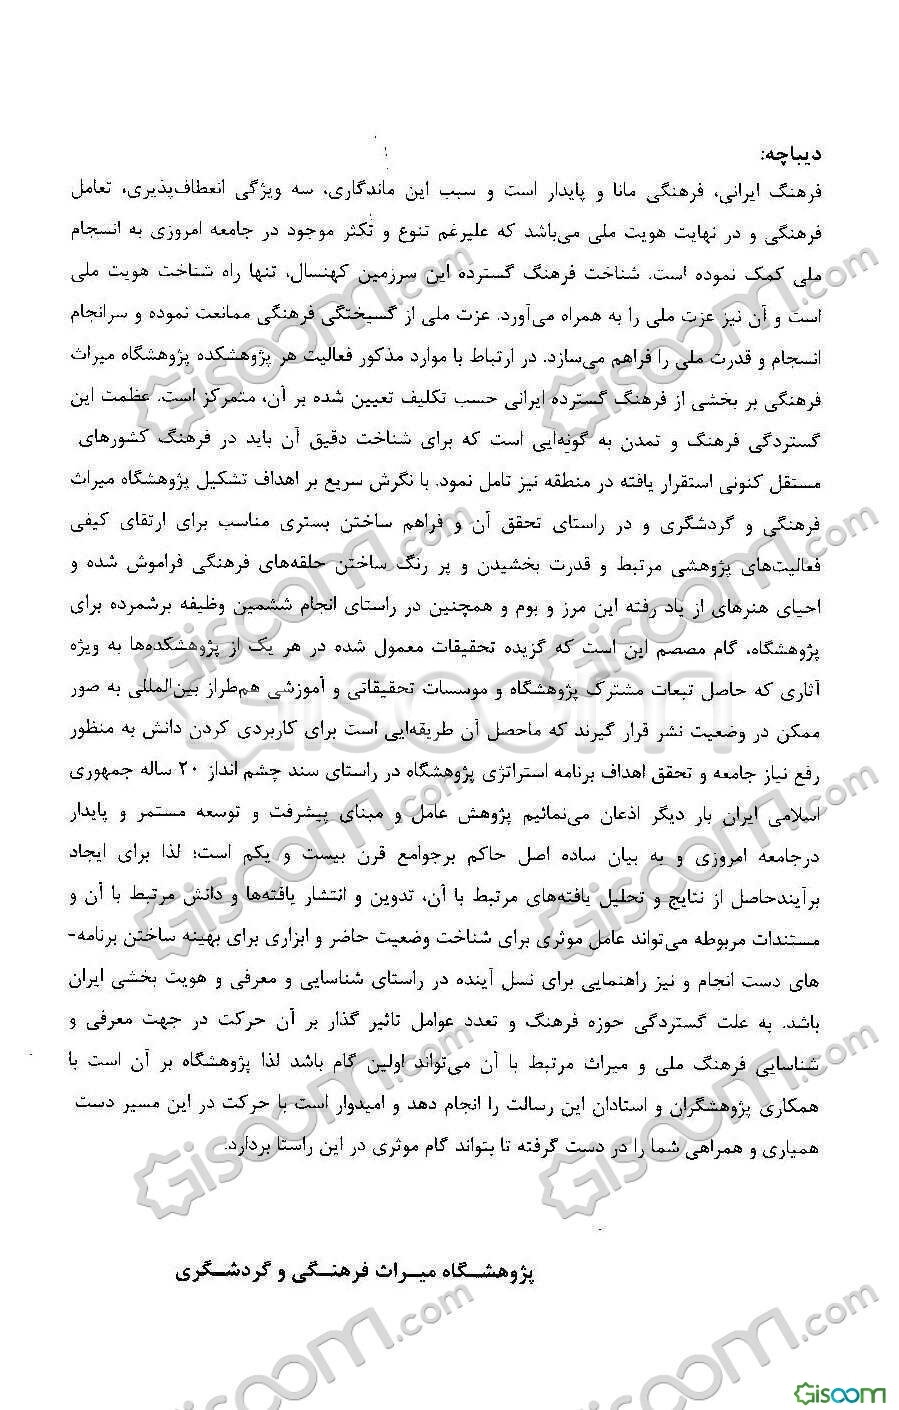 دیباچه:
فرهنگ ایرانی، فرهنگی مانا و پایدار است و سبب این ماندگاری، سه ویژگی انعطاف‌پذیری، تعامل
فرهنگی و در نهایت هویت ملی می‌باشد که علیرغم تنوع و تکثر موجود در جامعه امروزی به انسجام
ملی کمک نموده است. شناخت فرهنگ گسترده این سرزمین کهنسال، تنها راه شناخت هویت ملی
است و آن نیز عزت ملی را به همراه می‌آورد. عزت ملی از گسیختگی فرهنگی ممانعت نموده و سرانجام
انسجام و قدرت ملی را فراهم می‌سازد. در ارتباط با موارد مذکور فعالیت هر پژوهشکده پژوهشگاه میراث
فرهنگی بر بخشی از فرهنگ گسترده ایرانی حسب تکلیف تعیین شده بر آن، متمرکز است. عظمت این
گستردگی فرهنگ و تمدن به گونه‌ایی است که برای شناخت دقیق آن باید در فرهنگ کشورهای
مستقل کنونی استقرار یافته در منطقه نیز تامل نمود. با نگرش سریع بر اهداف تشکیل پژوهشگاه میراث
فرهنگی و گردشگری و در راستای تحقق آن و فراهم ساختن بستری مناسب برای ارتقای کیفی
فعالیت‌های پژوهشی مرتبط و قدرت بخشیدن و پر رنگ ساختن حلقه‌های فرهنگی فراموش شده و
احیای هنرهای از یاد رفته این مرز و بوم و همچنین در راستای انجام ششمین وظیفه برشمرده برای
پژوهشگاه، گام مصصم این است که گزیده تحقیقات معمول شده در هر یک از پژوهشکده‌ها به ویژه
آثاری که حاصل تبعات مشترک پژوهشگاه و موسسات تحقیقاتی و آموزشی هم‌طراز بین‌المللی به صور
ممکن در وضعیت نشر قرار گیرند که ماحصل آن طریقه‌ایی است برای کاربردی کردن دانش به منظور
رفع نیاز جامعه و تحقق اهداف برنامه استراتژی پژوهشگاه در راستای سند چشم انداز ۲۰ ساله جمهوری
اسلامی ایران بار دیگر اذعان می‌نمائیم پژوهش عامل و مبنای پیشرفت و توسعه مستمر و پایدار
درجامعه امروزی و به بیان ساده اصل حاکم برجوامع قرن بیست و یکم است؛ لذا برای ایجاد
برآیندحاصل از نتایج و تحلیل یافته‌های مرتبط با آن، تدوین و انتشار یافته‌ها و دانش مرتبط با آن و
مستندات مربوطه می‌تواند عامل موثری برای شناخت وضعیت حاضر و ابزاری برای بهینه ساختن برنامه-
های دست انجام و نیز راهنمایی برای نسل آینده در راستای شناسایی و معرفی و هویت بخشی ایران
باشد. به علت گستردگی حوزه فرهنگ و تعدد عوامل تاثیر گذار بر آن حرکت در جهت معرفی و
شناسایی فرهنگ ملی و میراث مرتبط با آن می‌تواند اولین گام باشد لذا پژوهشگاه بر آن است با
همکاری پژوهشگران و استادان این رسالت را انجام دهد و امیدوار است با حرکت در این مسیر دست
همیاری و همراهی شما را در دست گرفته تا بتواند گام موثری در این راستا بردارد.
پژوهشگاه میراث فرهنگی و گردشگری
Gisoom